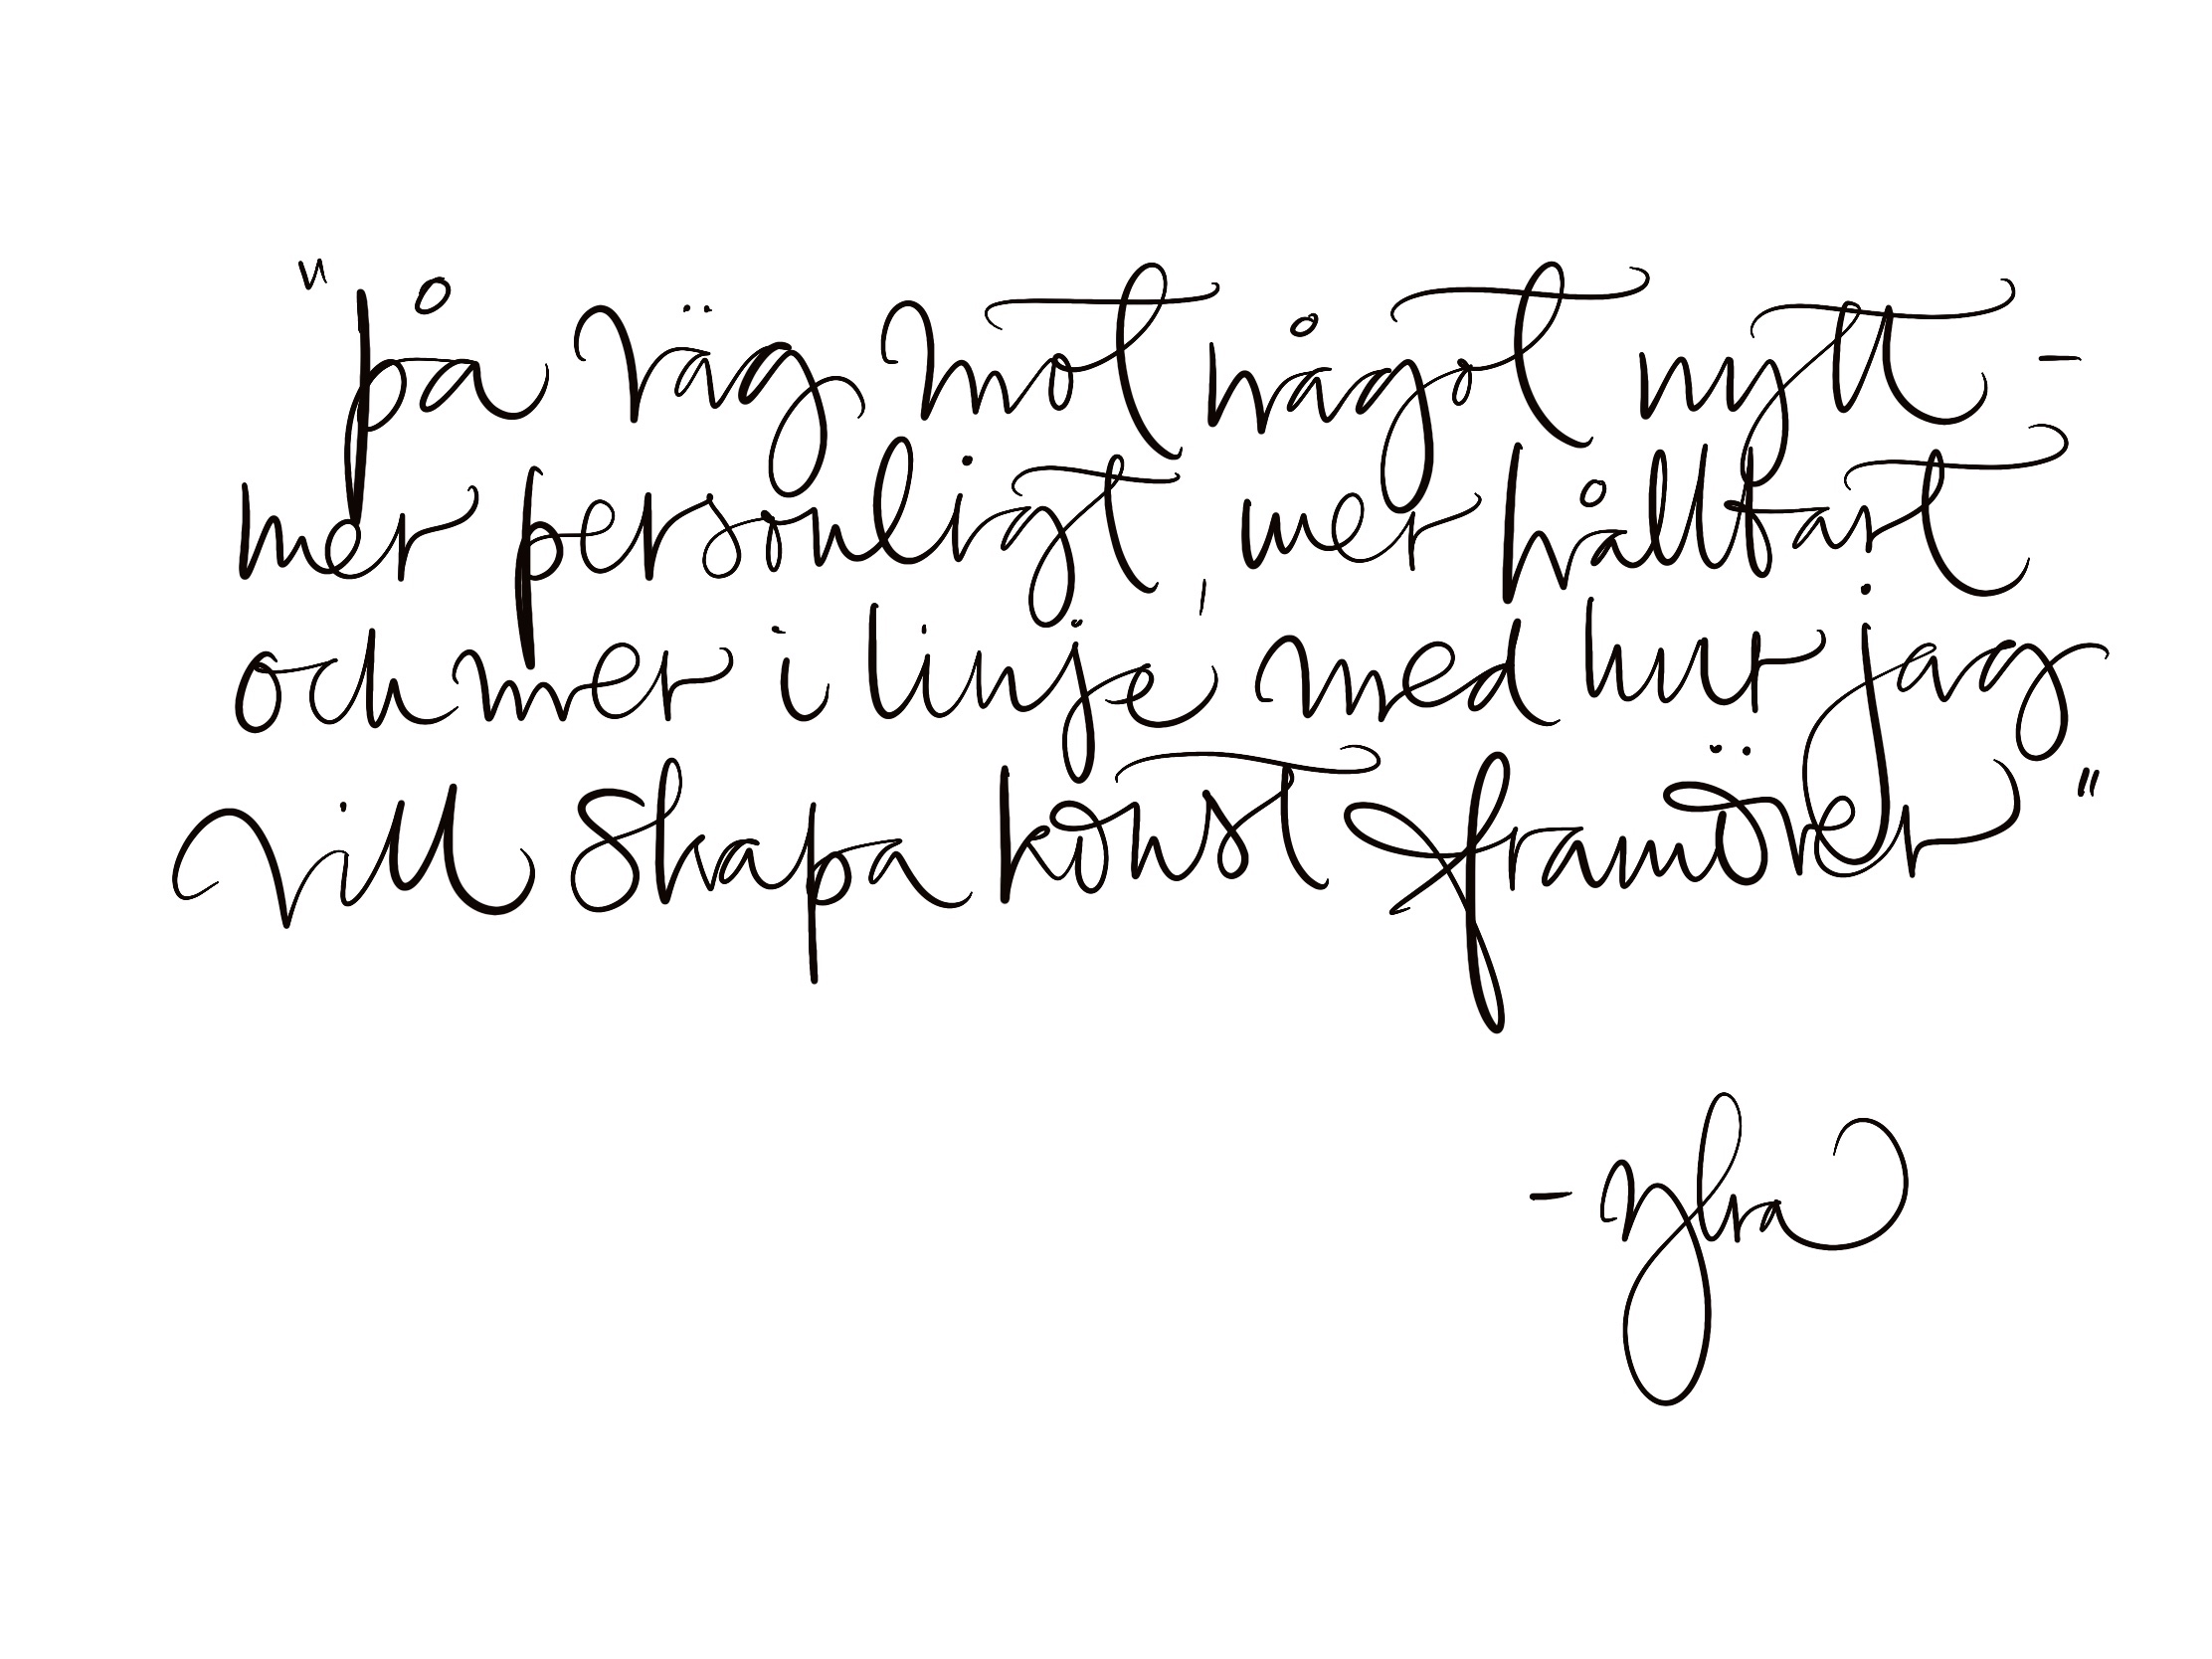 "på väg mot något nytt -
mer personligt, mer hållbart
och mer i linje med hur jag
vill skapa konst framöver"
- Ylva